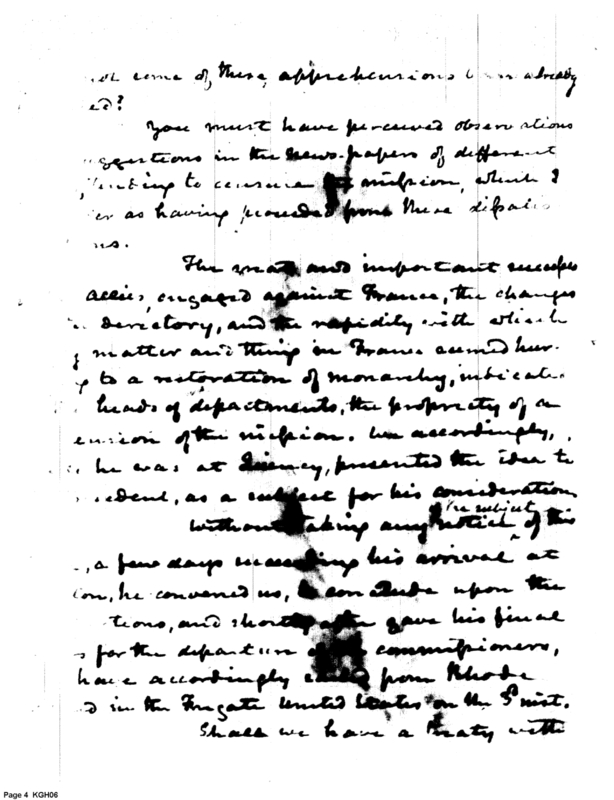 some of these apprehensions been already
ed?
You must have perceived observations
ggestions in the News-papers of different
tending to censure the mission, which I
er as having proceeded from these dispatch
ns.
The great and important successes
allies, engaged against France, the changes
directory, and the rapidity with which
matter and thing in France seemed hur-
g to a restoration of monarchy, indicate
heads of departments, the propriety of a
ension of the mission. We accordingly,
he was at Quincy, presented the idea to
sident, as a subject for his consideration
the subject
Without taking any notice of this
, a few days succeeding his arrival at
ton, he convened us, to conclude upon the
tions, and shortly after gave his final
s for the departure of the commissioners,
have accordingly sailed from Rhode
d in the Frigate United States on the 3d inst.
Shall we have a Treaty with
Page 4 KGH06